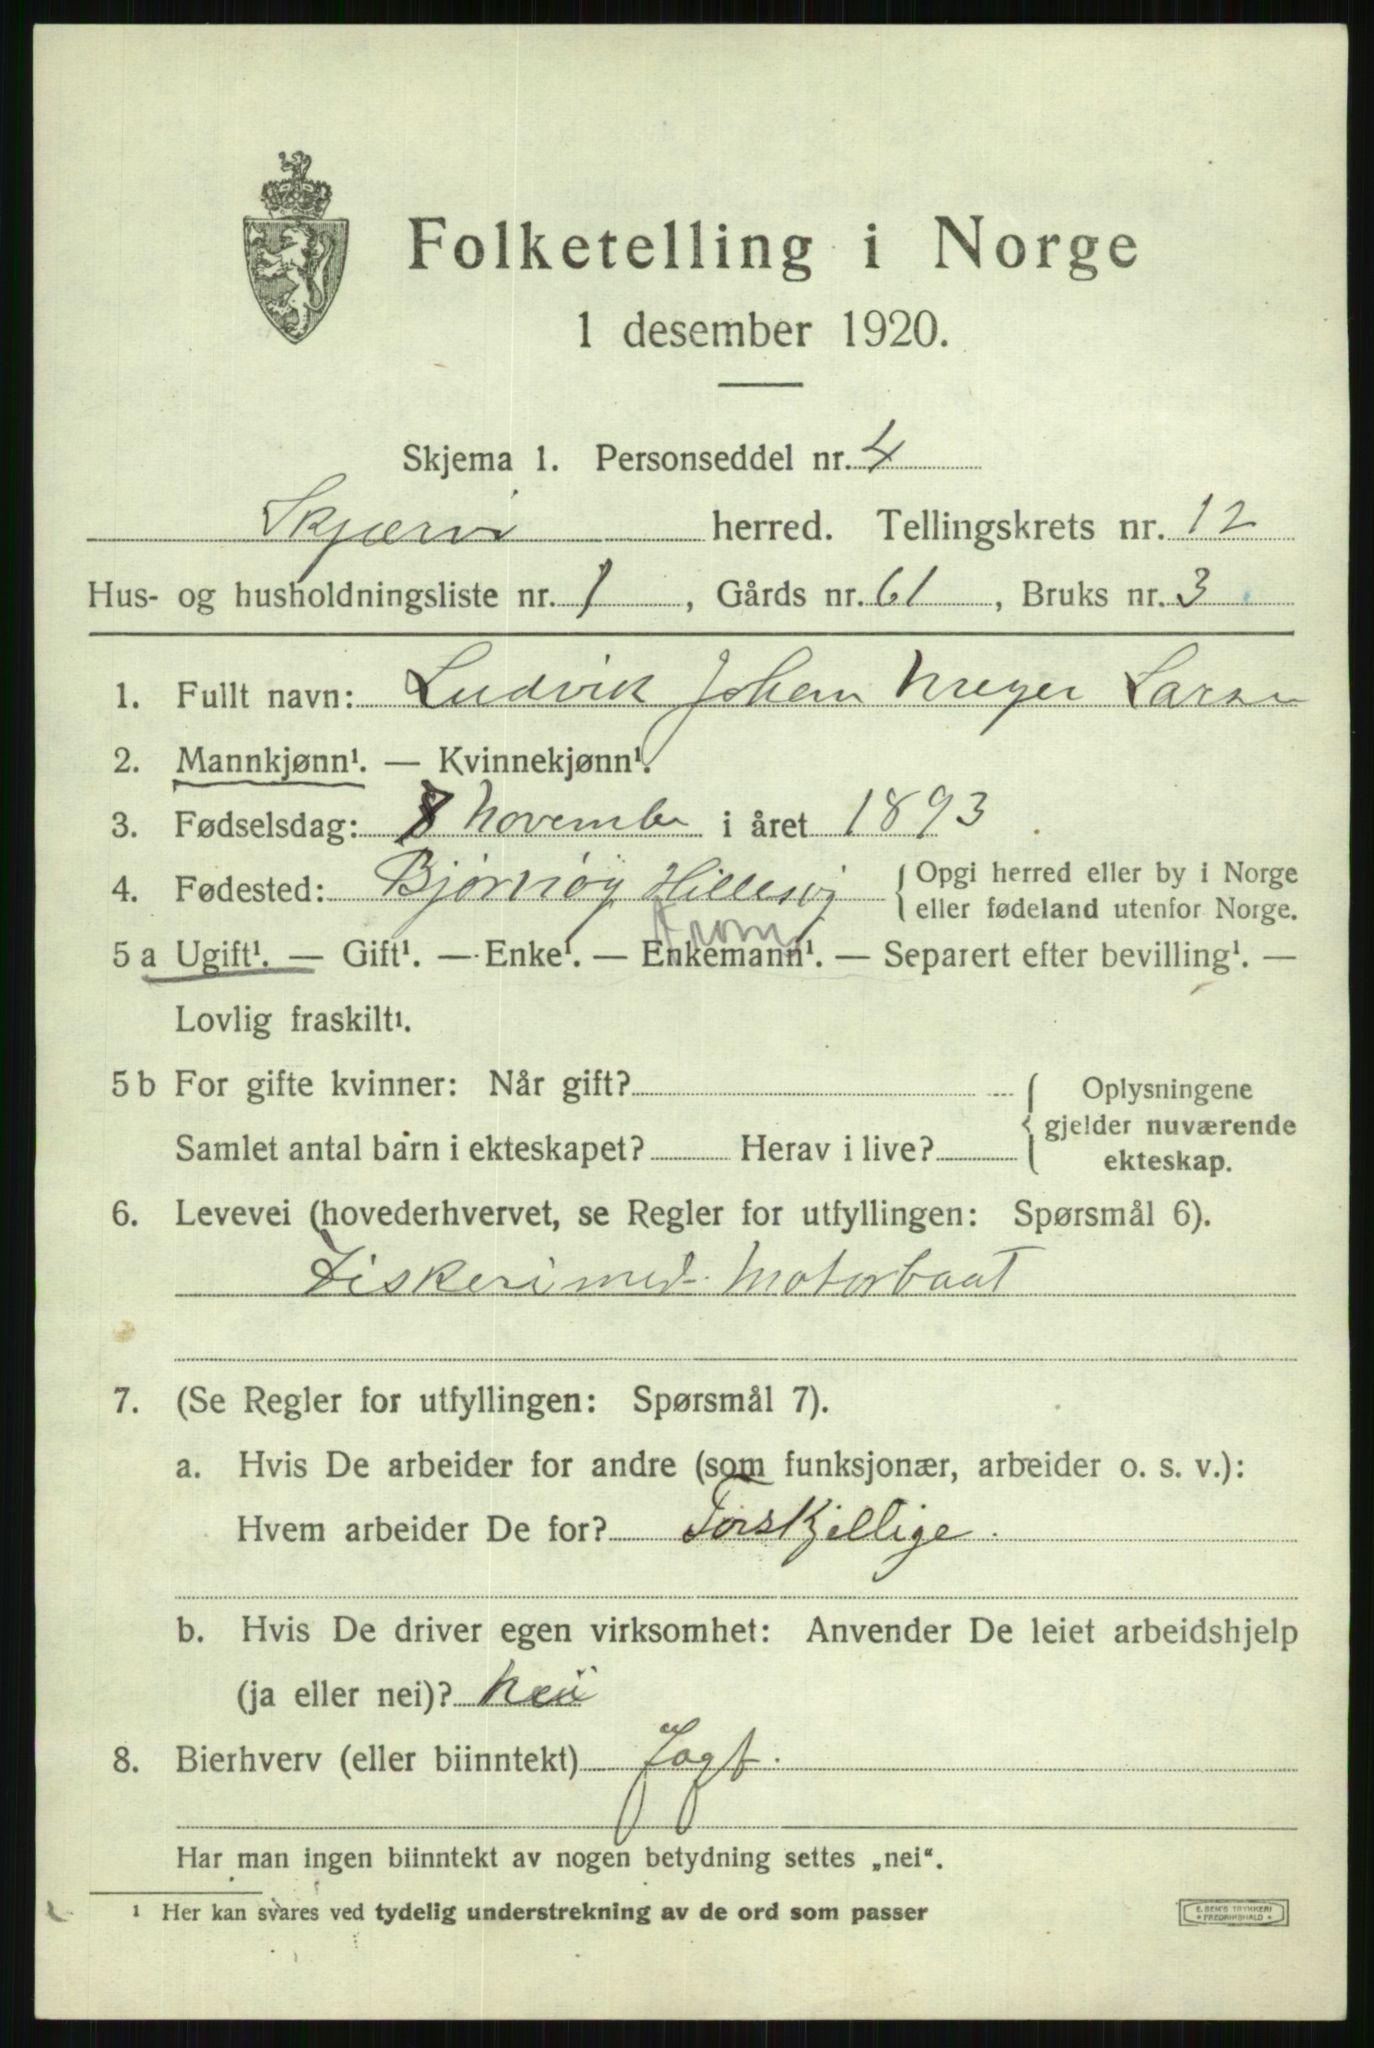 Folketelling i Norge
1 desember 1920.
Skjema 1. Personseddel nr. 4
Skjærvi herred. Tellingskrets nr. 12
Hus- og husholdningsliste nr. 1, Gårds nr. 61, Bruks nr. 3
1. Fullt navn: Ludvik Johan Meyer Larsen
2. Mannkjønn¹. — Kvinnekjønn¹.
3. Fødselsdag: 8 November i året 1893
4. Fødested: Bjørnøy Hillesøy { Opgi herred eller by i Norge
eller fødeland utenfor Norge.
Troms
5 a Ugift¹. — Gift¹. — Enke¹. — Enkemann¹. — Separert efter bevilling¹. —
Lovlig fraskilt¹.
5 b For gifte kvinner: Når gift?
Samlet antal barn i ekteskapet? Herav i live?
{ Oplysningene
gjelder nuværende
ekteskap.
6. Levevei (hovederhvervet, se Regler for utfyllingen: Spørsmål 6).
Fiskeri med Motorbaat
7. (Se Regler for utfyllingen: Spørsmål 7).
a. Hvis De arbeider for andre (som funksjonær, arbeider o. s. v.):
Hvem arbeider De for? Forskjellige.
b. Hvis De driver egen virksomhet: Anvender De leiet arbeidshjelp
(ja eller nei)? Nei
8. Bierhverv (eller biinntekt) Jagt.
Har man ingen biinntekt av nogen betydning settes „nei“.
¹ Her kan svares ved tydelig understrekning av de ord som passer
E. SEM'S TRYKKERI
* FREDRIKSHALD *